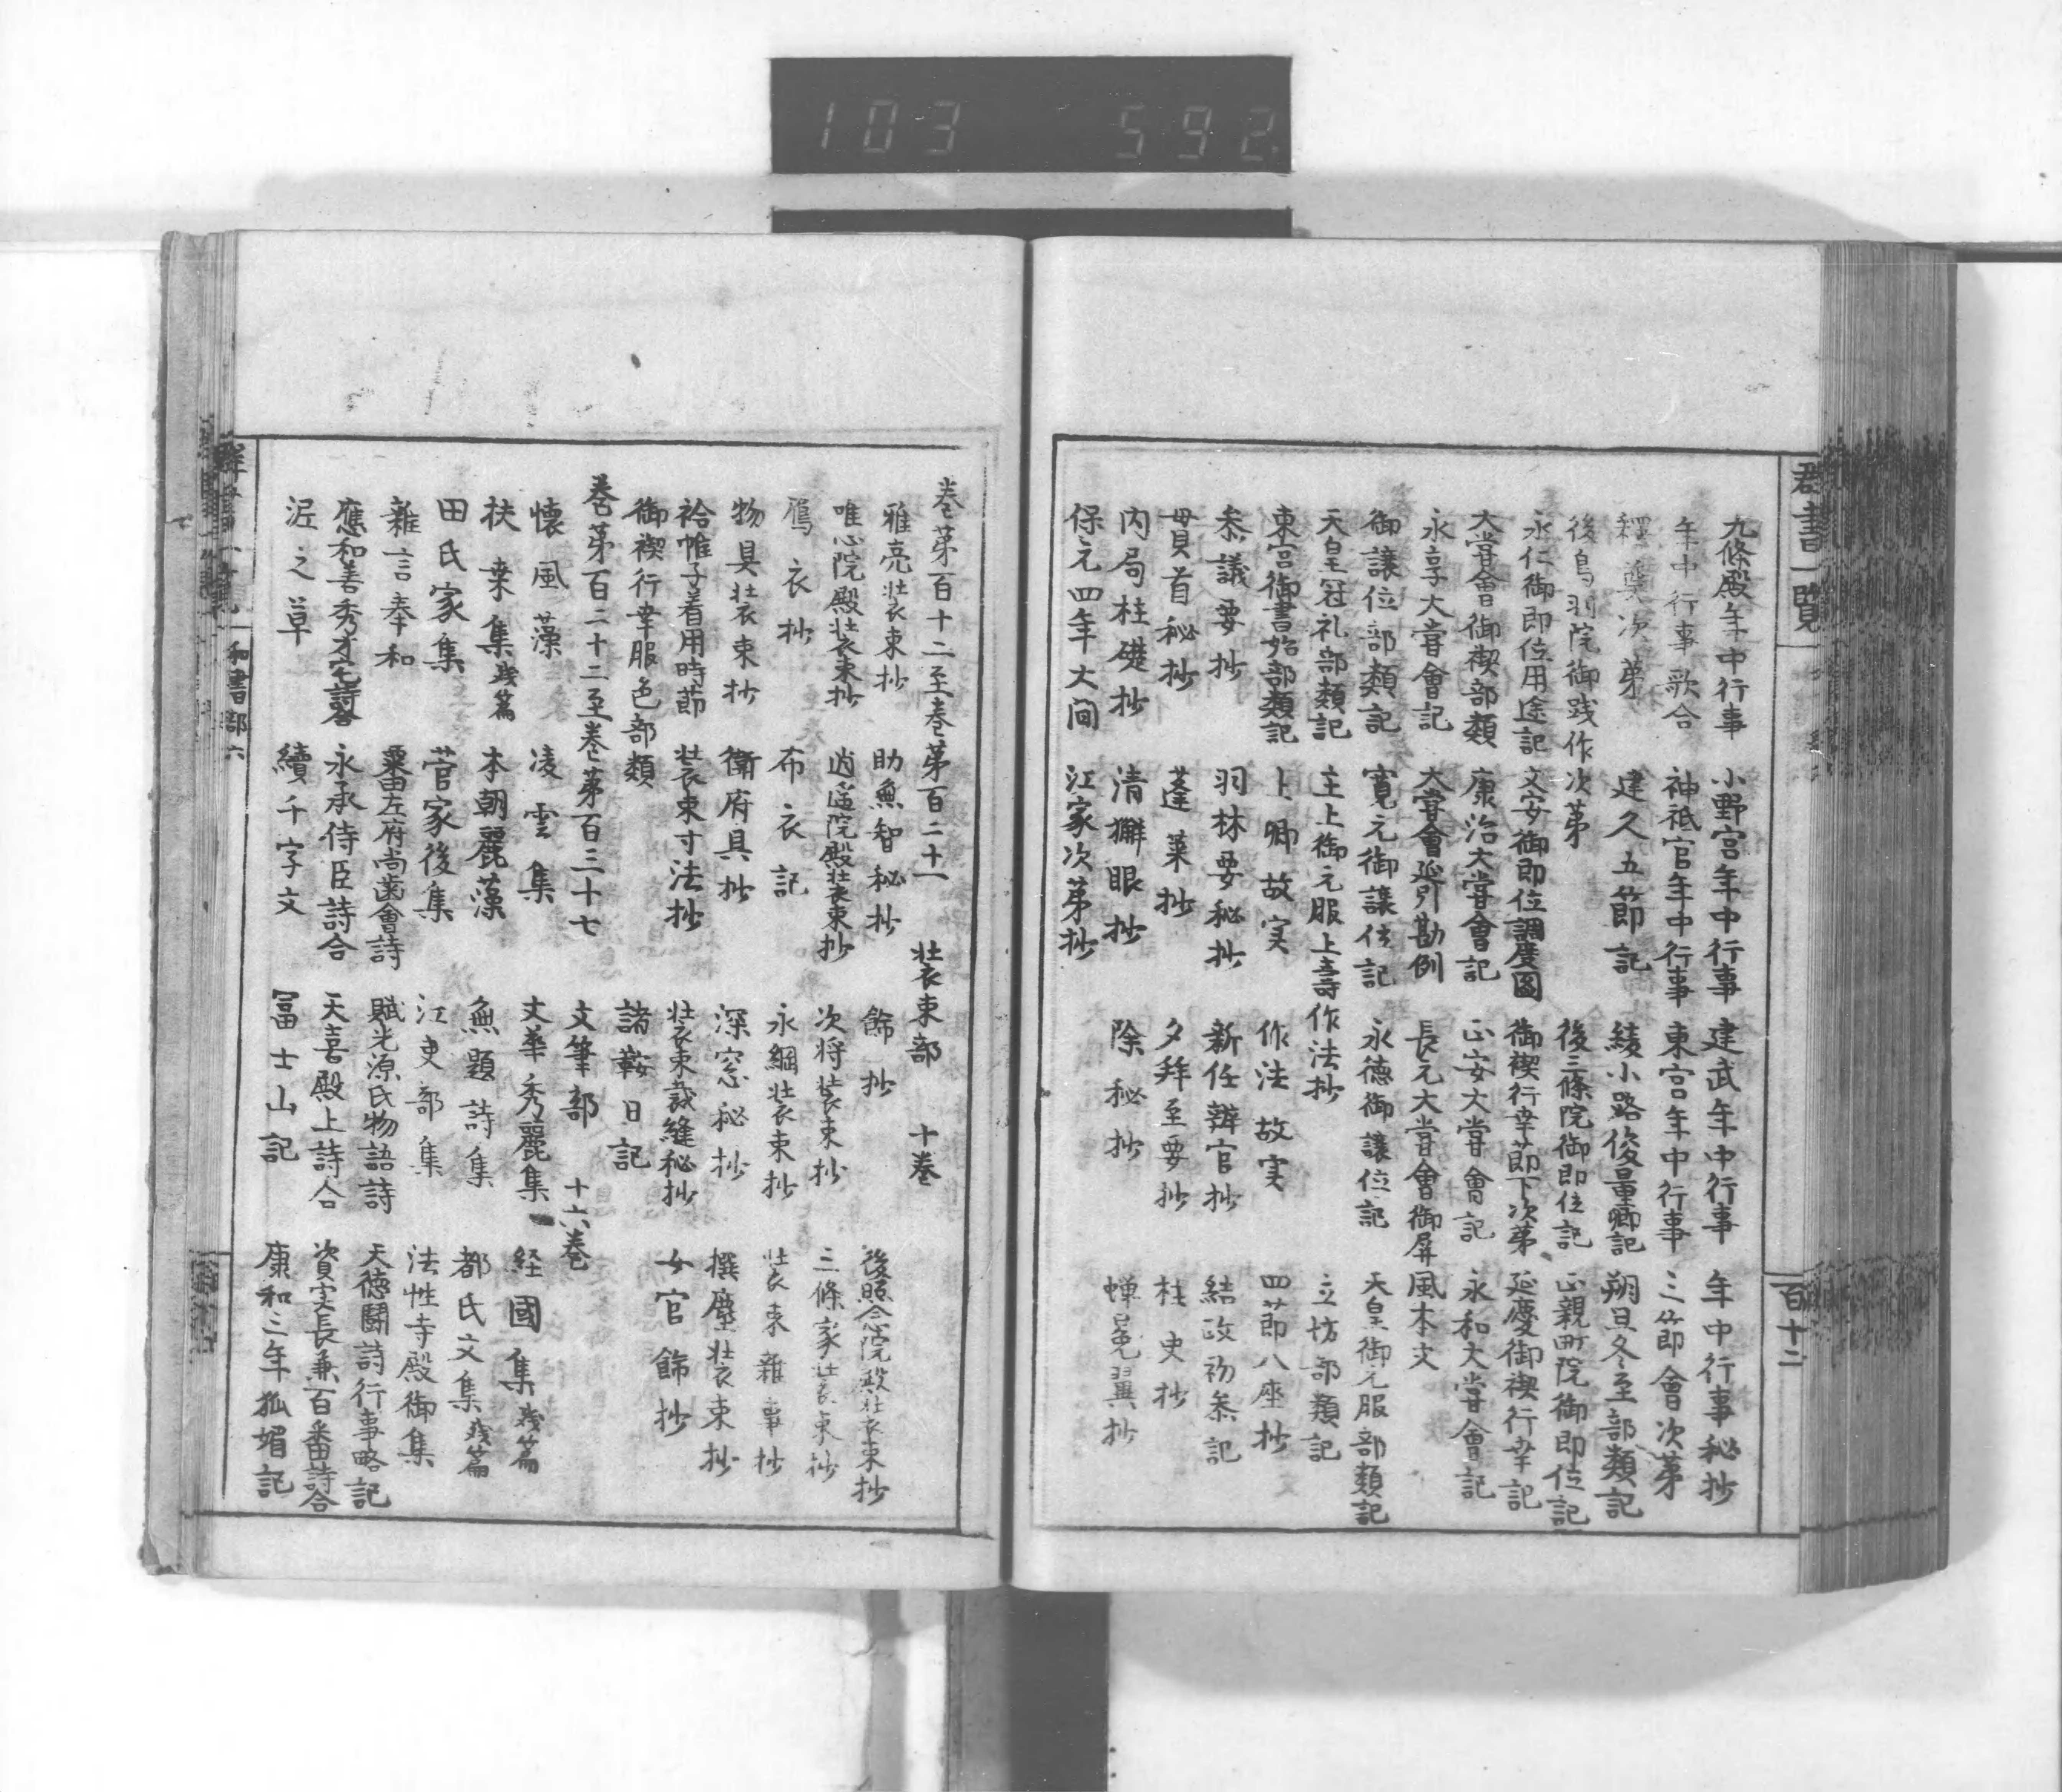 103 592
群書一覧
百十二
九條殿年中行事 小野宮年中行事 建武年中行事 年中行事秘抄
年中行事歌合 神祇官年中行事 東宮年中行事 三節會次第
釋奠次第 建久五節記 綾小路俊量卿記 朔旦冬至部類記
後鳥羽院御践作次第 後三條院御即位記 正親町院御即位記
永仁御即位用途記 文安御即位調度図 御禊行幸節下次第 延慶御禊行幸記
大嘗會御禊部類 康治大嘗會記 正安大嘗會記 永和大嘗會記
永享大嘗會記 大嘗會延引勘例 長元大嘗會御屏風本文
御譲位部類記 寛元御譲位記 永徳御譲位記 天皇御元服部類記
天皇冠礼部類記 主上御元服上壽作法抄 立坊部類記
東宮御書始部類記 上卿故実 作法故実 四節八座抄
参議要抄 羽林要秘抄 新任辨官抄 結政初参記
貫首秘抄 蓬莱抄 夕拜至要抄 柱史抄
内局柱礎抄 清獬眼抄 除秘抄 蝉冕翼抄
保元四年大間 江家次第抄
巻第百十二至巻第百二十一 装束部 十巻
雅亮装束抄 助無智秘抄 餝抄 後照念院殿装束抄
唯心院殿装束抄 逍遥院殿装束抄 次将装束抄 三條家装束抄
鴈衣抄 布衣記 永綱装束抄 装束雜事抄
物具装束抄 衛府具抄 深窓秘抄 撰塵装束抄
袷帷子着用時節 装束寸法抄 装束裁縫秘抄 女官餝抄
御禊行幸服色部類 諸鞍日記
巻第百二十二至巻第百三十七 文筆部 十六巻
懐風藻 凌雲集 文華秀麗集 経國集残篇
扶桒集残篇 本朝麗藻 無題詩集 都氏文集残篇
田氏家集 菅家後集 江吏部集 法性寺殿御集
雜言奉和 粟田左府尚歯會詩 賦光源氏物語詩 天徳闘詩行事略記
應和善秀才宅詩合 永承侍臣詩合 天喜殿上詩合 資実長兼百番詩合
泥之草 續千字文 冨士山記 康和三年狐媚記
和書部六